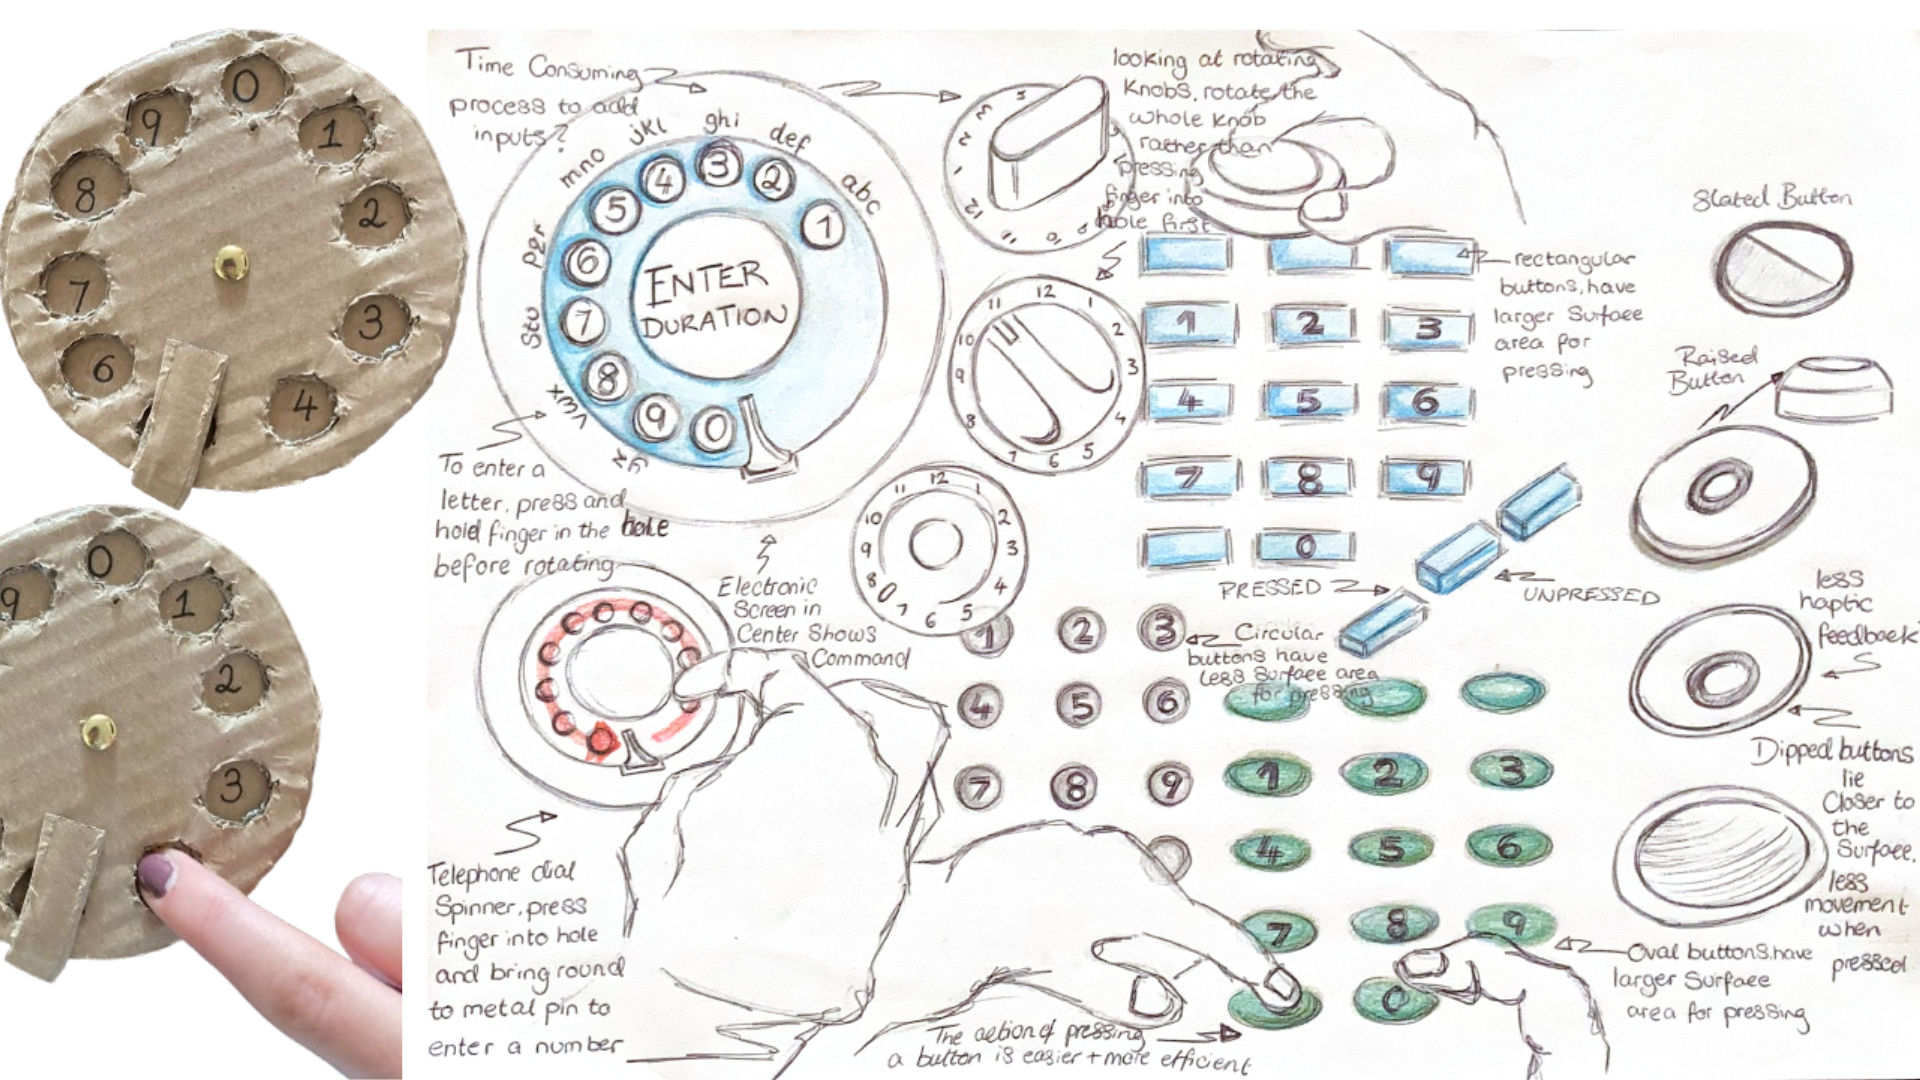 0
9
1
8
2
7
3
6
4
0
9
1
2
3
Time Consuming
process to add
inputs?
abc
def
ghi
jkl
mno
pqr
stu
vwx
yz
1
2
3
4
5
6
7
8
9
0
ENTER
DURATION
To enter a
letter, press and
hold finger in the hole
before rotating
Electronic
Screen in
Center Shows
Command
Telephone dial
Spinner, press
finger into hole
and bring round
to metal pin to
enter a number
looking at rotating
Knobs, rotate the
whole knob
rather than
pressing
finger into
hole first
12
1
2
3
4
5
6
7
8
9
10
11
12
1
2
3
4
5
6
7
8
9
10
11
rectangular
buttons, have
larger Surface
area for
pressing
1 2 3
4 5 6
7 8 9
0
PRESSED
UNPRESSED
1 2 3
4 5 6
7 8 9
Circular
buttons have
less Surface area
for pressing
1 2 3
4 5 6
7 8 9
0
Oval buttons have
larger Surface
area for pressing
The action of pressing
a button is easier + more efficient
Slated Button
Raised
Button
less
haptic
feedback
Dipped buttons
lie
Closer to
the
Surface,
less
movement
when
pressed